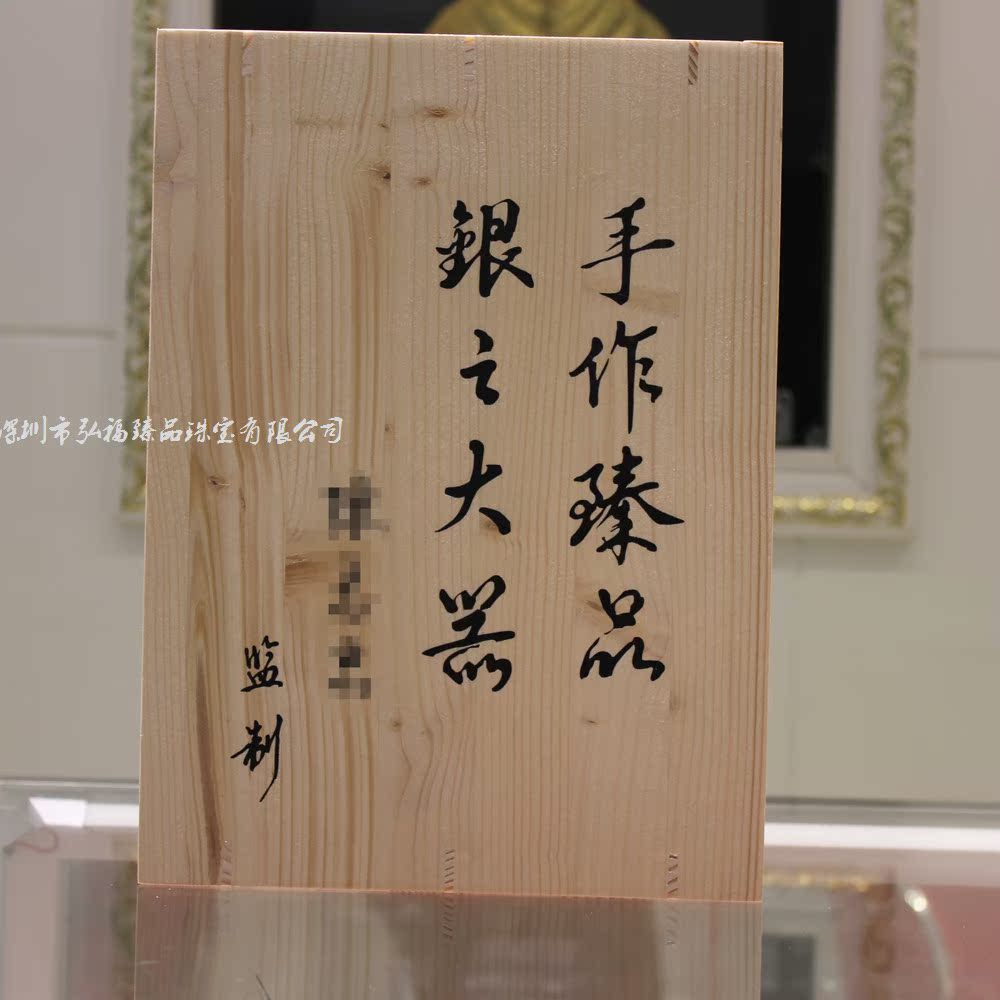 手作臻品
銀之大器
监制
深圳市弘福臻品珠宝有限公司